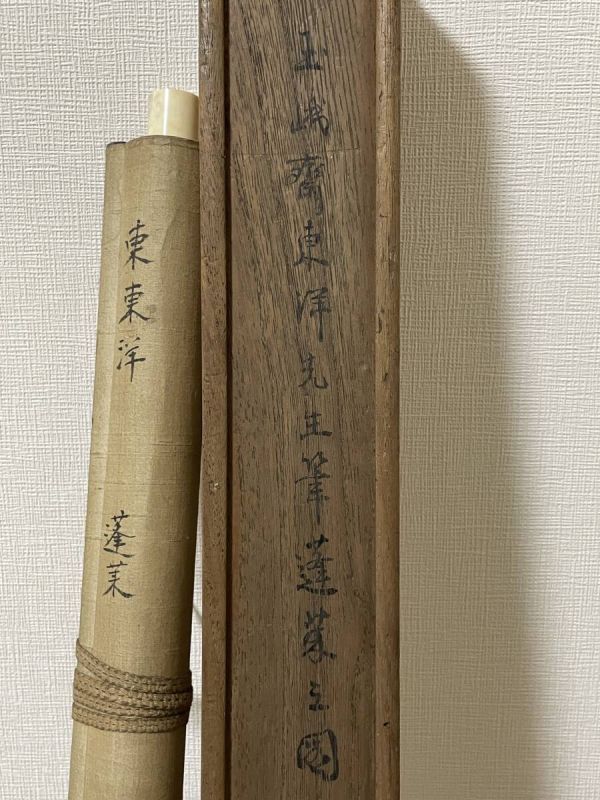 玉峨齋東洋先生筆蓬莱之図
東東洋 蓬莱